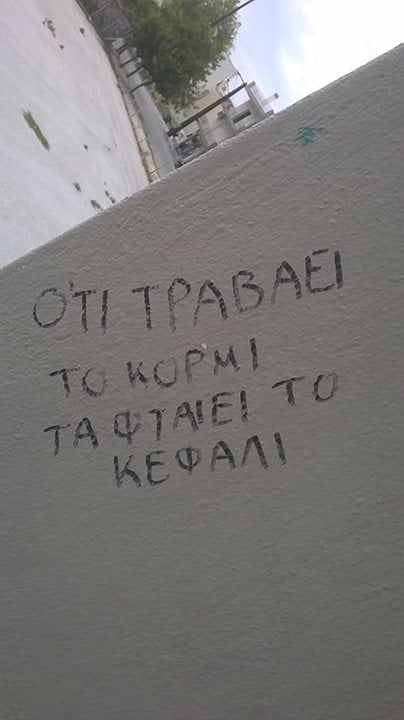 Ό,ΤΙ ΤΡΑΒΑΕΙ
ΤΟ ΚΟΡΜΙ
ΤΑ ΦΤΑΙΕΙ ΤΟ
ΚΕΦΑΛΙ